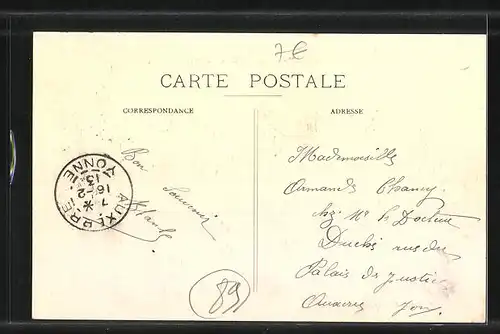 7€
CARTE POSTALE
CORRESPONDANCE
ADRESSE
Bon
Souvenir
Blanche
AUXERRE
YONNE
7 *
16 - 2
13
Mademoiselle
Armande Chancy
chz Mr le Docteur
Duché rue du
Palais de Justice
Auxerre Yon.
89